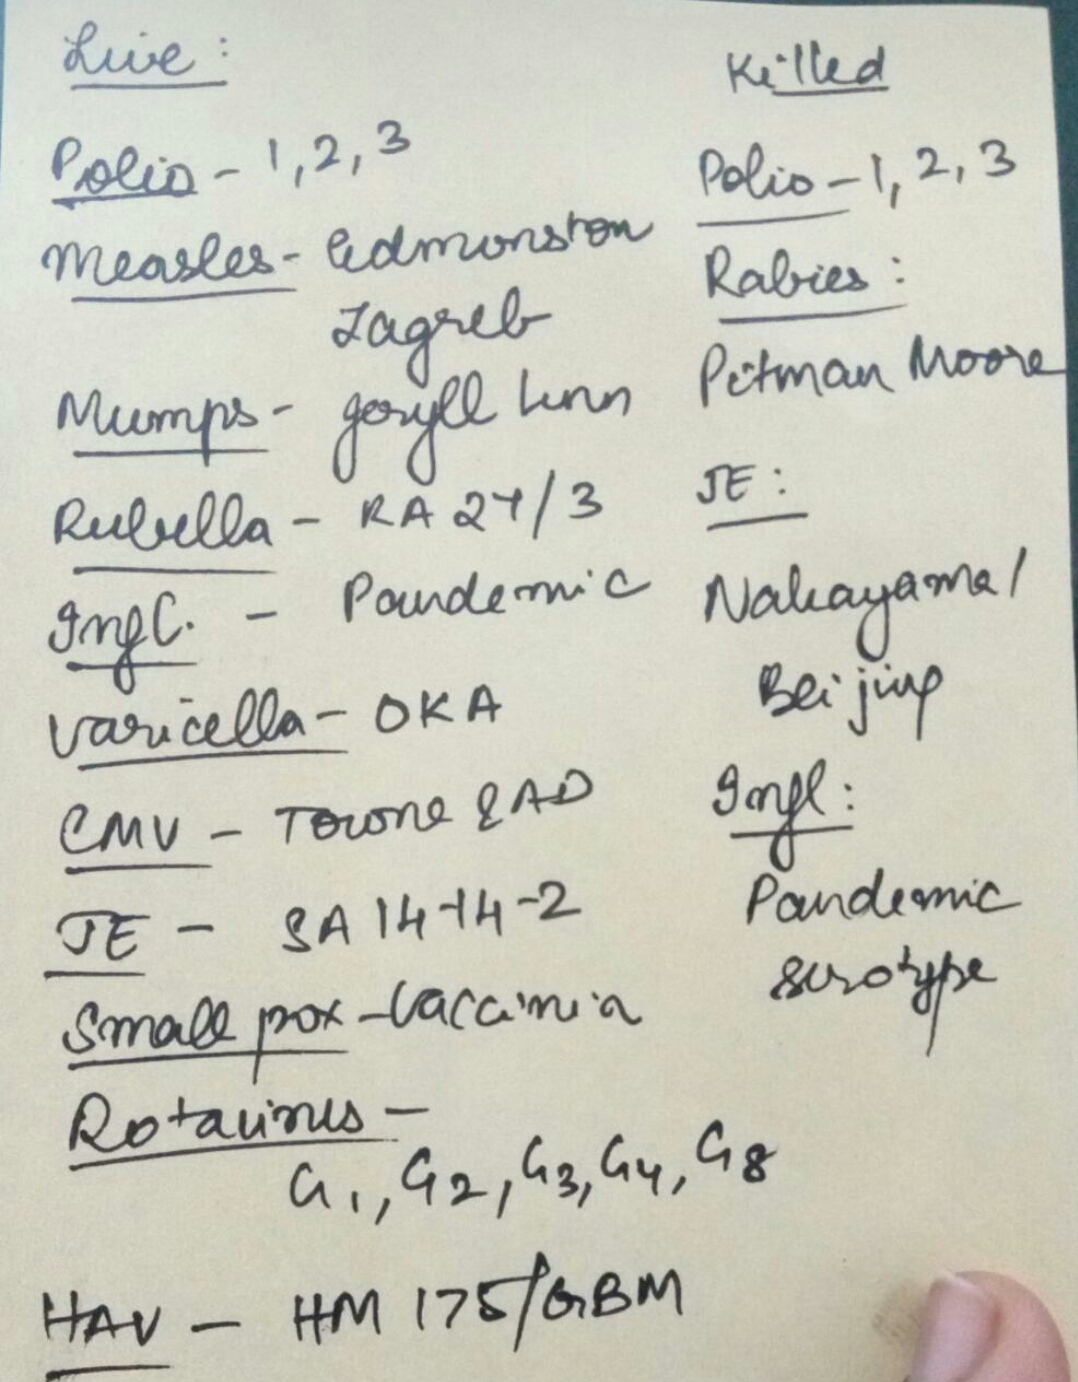 Live :
Polio - 1, 2, 3
Measles - Edmonston
Zagreb
Mumps - Jeryll Linn
Rubella - RA 27/3
Infl. - Pandemic
Varicella - OKA
CMV - Towne & AD
JE - SA 14-14-2
Small pox - Vaccinia
Rotavirus -
G1, G2, G3, G4, G8
HAV - HM 175/GBM
Killed
Polio - 1, 2, 3
Rabies :
Pitman Moore
JE :
Nakayama /
Beijing
Infl :
Pandemic
serotype